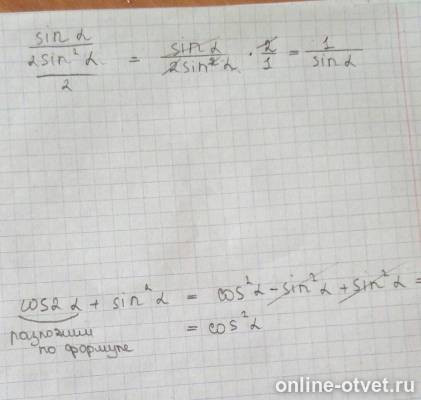 sin α / (2 sin² α / 2) = sin α / 2 sin² α · 2/1 = 1 / sin α
cos2 α + sin² α = cos² α - sin² α + sin² α =
разложим = cos² α
по формуле
online-otvet.ru